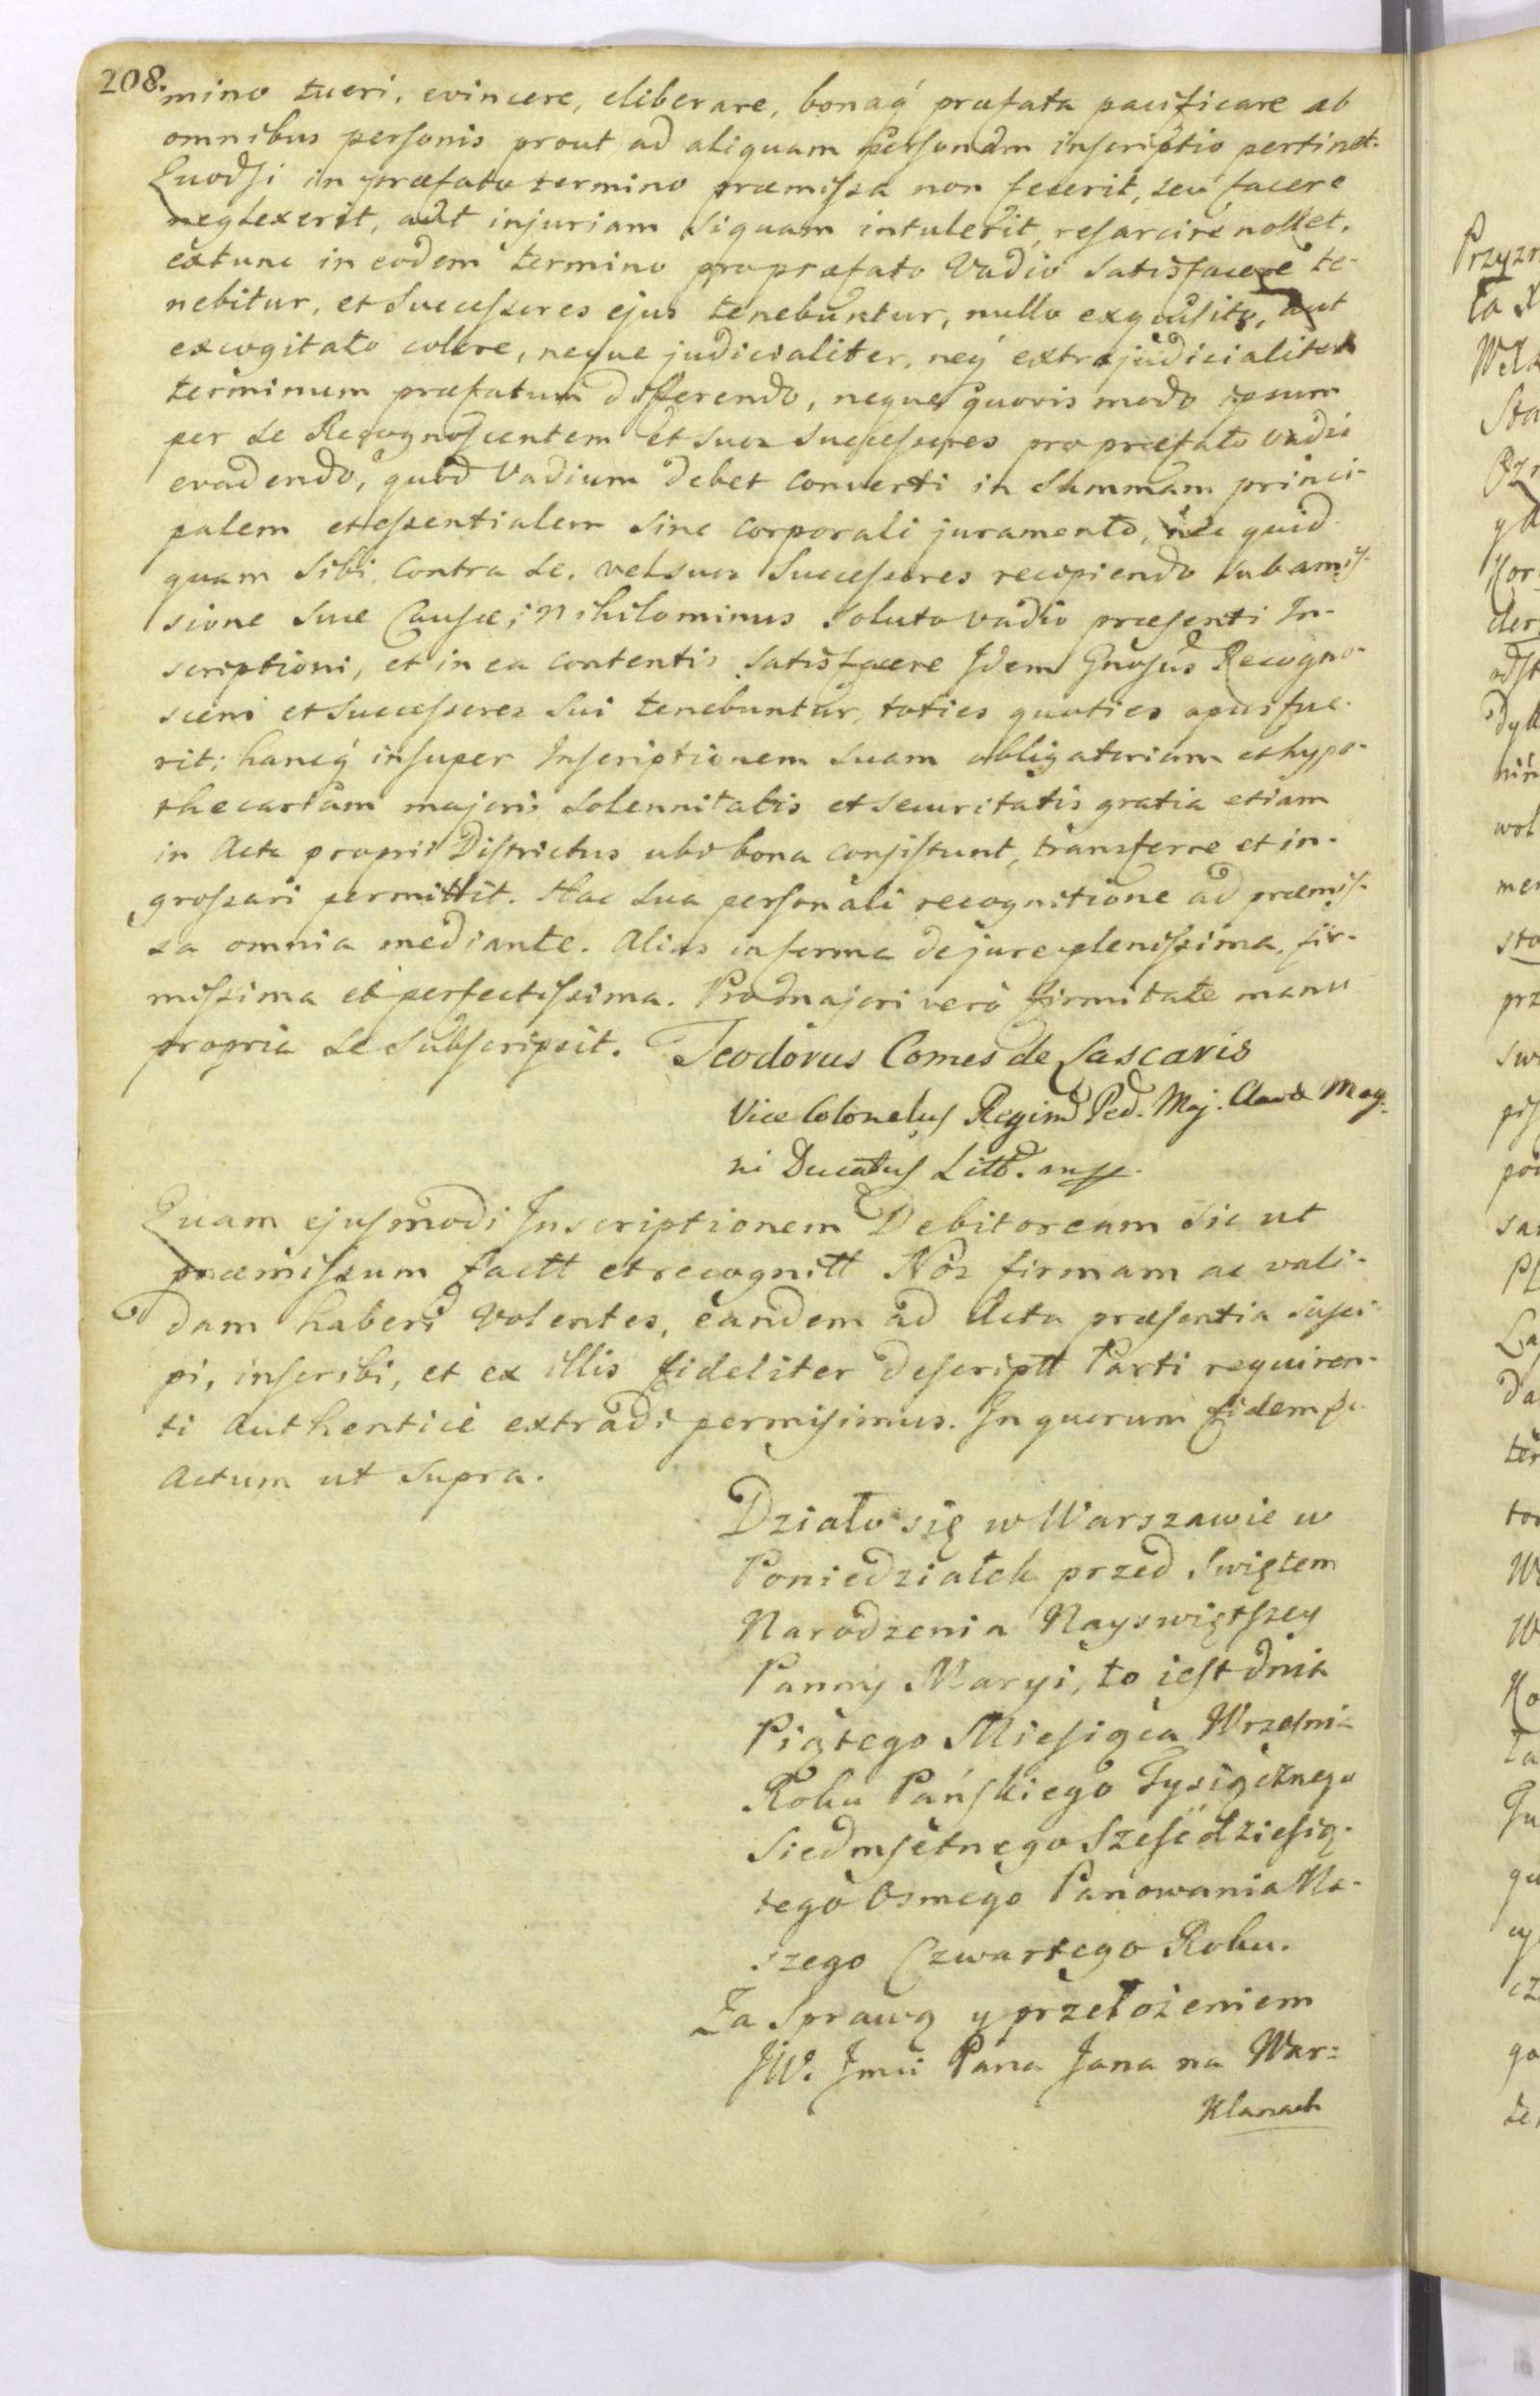 208.
mino tueri, evincere, eliberare, bonaq́ præfata pacificare ab
omnibus personis prout ad aliquam Personam inscriptio pertinet.
Quodsi in præfato termino præmissa non fecerit, seu facere
neglexerit, aut injuriam siquam intulerit, resarcire nollet,
extunc in eodem termino pro præfato Vadio satisfacere te-
nebitur, et Successores ejus tenebuntur, nullo exquisito, aut
excogitato colore, neque judicialiter, neq́ extrajudicialiter
terminum præfatum differendo, neque quovis modo ipsum
per se Recognoscentem et suos successores pro præfato vadio
evadendo, quod Vadium debet converti in Summam princi-
palem et essentialem sine corporali juramento, nec quid-
quam sibi contra se, vel suos Successores recipiendo sub amis-
sione suæ Causæ; Nihilominus soluto vadio præsenti In-
scriptioni, et in ea contentis satisfacere Idem Gnosus Recogno-
scens et successores sui tenebuntur, toties quoties opus fue-
rit; hancq́ insuper Inscriptionem suam obligatoriam et hypo-
thecariam majoris solennitatis et securitatis gratia etiam
in Acta proprii Districtus ubi bona consistunt, transferre et in-
grossari permittit. Hac sua personali recognitione ad præmis-
sa omnia mediante. Alias in forma de jure plenissima, fir-
missima et perfectissima. Pro majori verò firmitate manu
propria se subscripsit. Teodorus Comes de Lascaris
Vice Colonelus Regim Ped. Maj. Clavæ Mag-
ni Ducatus Litt. mpp.
Quam ejusmodi Inscriptionem Debitoream sic ut
præmissum factt et recognitt Nos firmam ac vali-
dam haberi volentes, eandem ad Acta præsentia susci-
pi, inscribi, et ex illis fideliter descriptt Parti requiren-
ti authenticè extradi permisimus. In quorum fidem p.
Actum ut supra.
Działo się w Warszawie w
Poniedziałek przed Swiętem
Narodzenia Nayswiętszey
Panny Maryi, to iest dnia
Piątego Miesiąca Wrzesnia
Roku Pańskiego Tysiącznego
Siedmsetnego Sześćdziesią-
tego Osmego Panowania Na-
szego Czwartego Roku.
Za Sprawą y przełożeniem
JW. Jmci Pana Jana na War-
Klanach